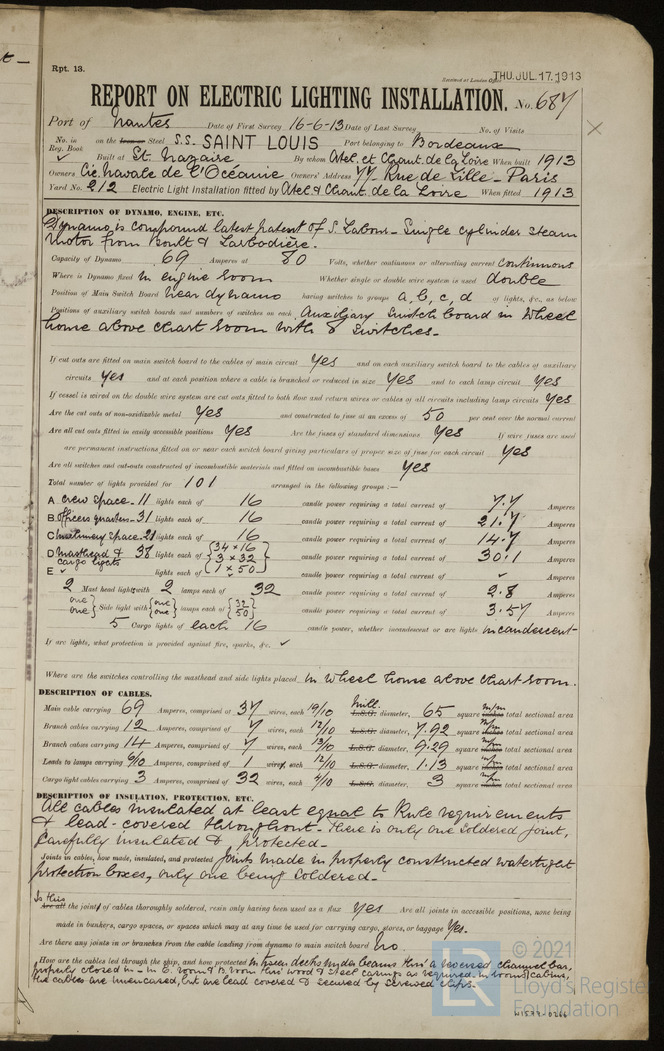 Rpt. 13.
Received at London Office THU. JUL. 17. 1913
REPORT ON ELECTRIC LIGHTING INSTALLATION. No. 687
Port of Nantes Date of First Survey 16-6-13 Date of Last Survey No. of Visits
No. in Reg. Book on the Iron or Steel S.S. SAINT LOUIS Port belonging to Bordeaux
✓ Built at St. Nazaire By whom Atel. et Chant. de la Loire When built 1913
Owners Cie. Navale de l'Océanie Owners' Address 77 - Rue de Lille - Paris
Yard No. 212 Electric Light Installation fitted by Atel & Chant. de la Loire When fitted 1913
DESCRIPTION OF DYNAMO, ENGINE, ETC.
Dynamo is compound latest patent of S. Labour - Single cylinder steam
motor from Boult & Larbodière.
Capacity of Dynamo 69 Amperes at 80 Volts, whether continuous or alternating current Continuous
Where is Dynamo fixed In engine room Whether single or double wire system is used double
Position of Main Switch Board Near dynamo having switches to groups a, b, c, d of lights, &c., as below
Positions of auxiliary switch boards and numbers of switches on each Auxiliary Switch board in Wheel
house above Chart room with 8 Switches.-
If cut outs are fitted on main switch board to the cables of main circuit Yes and on each auxiliary switch board to the cables of auxiliary
circuits Yes and at each position where a cable is branched or reduced in size Yes and to each lamp circuit Yes
If vessel is wired on the double wire system are cut outs fitted to both flow and return wires or cables of all circuits including lamp circuits Yes
Are the cut outs of non-oxidizable metal Yes and constructed to fuse at an excess of 50 per cent over the normal current
Are all cut outs fitted in easily accessible positions Yes Are the fuses of standard dimensions Yes If wire fuses are used
are permanent instructions fitted on or near each switch board giving particulars of proper size of fuse for each circuit Yes
Are all switches and cut-outs constructed of incombustible materials and fitted on incombustible bases Yes
Total number of lights provided for 101 arranged in the following groups :—
A Crew space - 11 lights each of 16 candle power requiring a total current of 7.7 Amperes
B Officers quarters - 31 lights each of 16 candle power requiring a total current of 21.7 Amperes
C Machinery space - 21 lights each of 16 candle power requiring a total current of 14.7 Amperes
D Masthead & cargo lights 38 lights each of {34 × 16 3 × 32 1 × 50} candle power requiring a total current of 30.1 Amperes
E ✓ lights each of ✓ candle power requiring a total current of ✓ Amperes
2 Mast head light with 2 lamps each of 32 candle power requiring a total current of 2.8 Amperes
one one } Side light with {one one} lamps each of {32 50} candle power requiring a total current of 3.57 Amperes
5 Cargo lights of each 16 candle power, whether incandescent or arc lights incandescent
If arc lights, what protection is provided against fire, sparks, &c. ✓
Where are the switches controlling the masthead and side lights placed In Wheel house above Chart room.
DESCRIPTION OF CABLES.
Main cable carrying 69 Amperes, comprised of 37 wires, each 19/10 Mill. L.S.G. diameter, 65 square m/m inches total sectional area
Branch cables carrying 12 Amperes, comprised of 7 wires, each 12/10 L.S.G. diameter, 7.92 square m/m inches total sectional area
Branch cables carrying 14 Amperes, comprised of 7 wires, each 13/10 L.S.G. diameter, 9.29 square m/m inches total sectional area
Leads to lamps carrying 6/10 Amperes, comprised of 1 wires, each 12/10 L.S.G. diameter, 1.13 square m/m inches total sectional area
Cargo light cables carrying 3 Amperes, comprised of 32 wires, each 4/10 L.S.G. diameter, 3 square m/m inches total sectional area
DESCRIPTION OF INSULATION, PROTECTION, ETC.
All cables insulated at least equal to Rule requirements
& lead-covered throughout - There is only one soldered joint,
Carefully insulated & protected -
Joints in cables, how made, insulated, and protected Joints made in properly constructed watertight
protection boxes, only one being soldered.-
Is this
Are all the joints of cables thoroughly soldered, resin only having been used as a flux Yes Are all joints in accessible positions, none being
made in bunkers, cargo spaces, or spaces which may at any time be used for carrying cargo, stores, or baggage Yes.
Are there any joints in or branches from the cable leading from dynamo to main switch board No.
How are the cables led through the ship, and how protected In tween decks under beams thro' a reversed channel bar,
properly closed in - In E. room & B. room thro' wood & steel casings as required. In rooms, cabins,
the cables are unencased, but are lead covered & secured by screwed clips.
© 2021
Lloyd's Register
Foundation
LR
W1577-0266